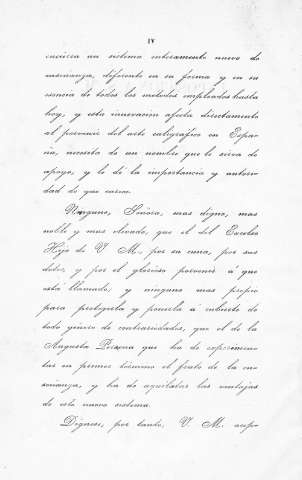 IV
encierra un sistema enteramente nuevo de
enseñanza, diferente en su forma y en su
esencia de todos los métodos empleados hasta
hoy, y esta innovación afecta directamente
al porvenir del arte caligráfico en Espa-
ña, necesita de un nombre que le sirva de
apoyo, y le dé la importancia y autori-
dad de que carece.
Ninguno, Señora, mas digno, mas
noble y mas elevado, que el del Excelso
Hijo de V. M., por su cuna, por sus
dotes, y por el glorioso porvenir á que
está llamado; y ninguno mas propio
para protegerla y ponerla á cubierto de
todo género de contrariedades, que el de la
Augusta Persona que ha de experimen-
tar en primer término el fruto de la en-
señanza, y ha de aquilatar las ventajas
de este nuevo sistema.
Dígnese, por tanto, V. M. acep-